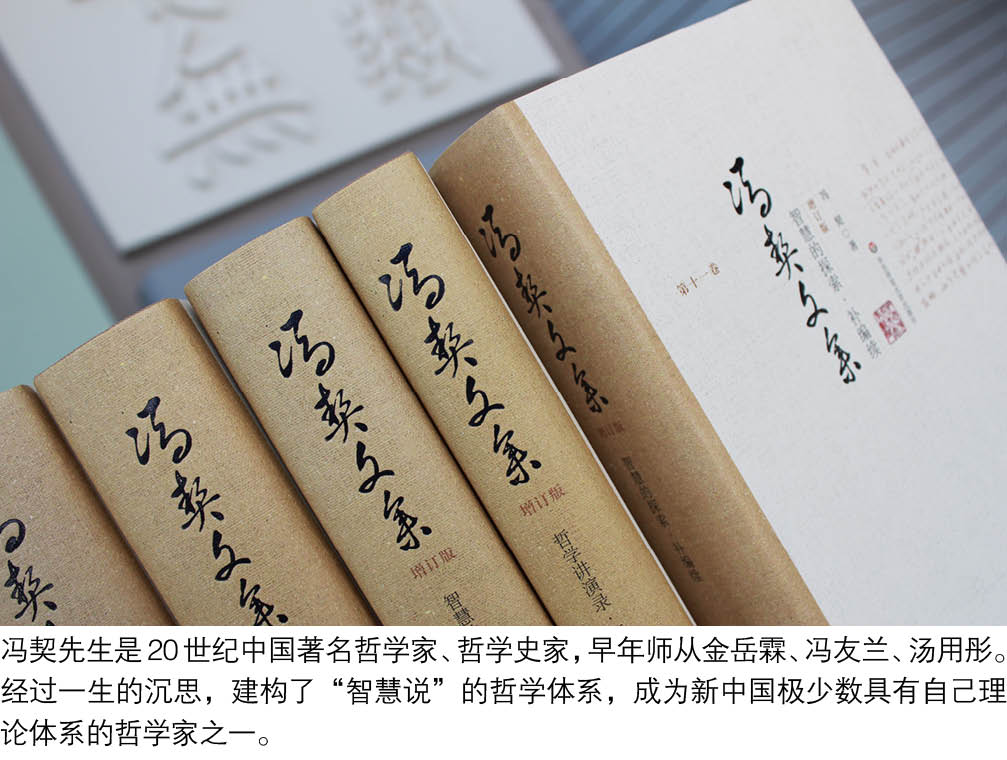 冯契文集
冯契文集
增订版
智慧
冯契文集
增订版
哲学讲演录·
冯契文集
增订版
智慧的探索·补编续
第十一卷
冯契文集
增订版
智慧的探索·补编续
冯契◎著
冯契先生是20世纪中国著名哲学家、哲学史家，早年师从金岳霖、冯友兰、汤用彤。
经过一生的沉思，建构了“智慧说”的哲学体系，成为新中国极少数具有自己理
论体系的哲学家之一。